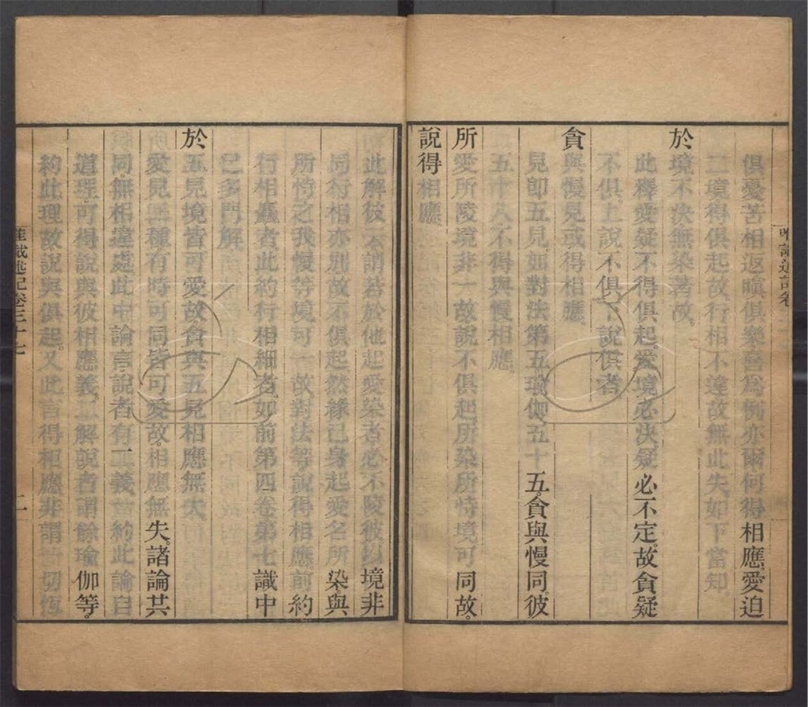 俱憂苦相返瞋俱樂喜為例亦爾何得相應愛迫
二境得俱起故行相不違故無此失如下當知
於境不決無染著故。
此釋愛疑不得俱起愛境必決疑必不定故貪疑
不俱上說不俱下說俱者。
貪與慢見或得相應。
見卽五見如對法第五瑜伽五十五貪與慢同彼
五十八不得與慢相應。
所愛所陵境非一故說不俱起所染所恃境可同故。
說得相應。
此解彼云謂若於他起愛染者必不陵彼以境非
同行相亦別故不俱起然緣己身起愛名所染與
所恃之我慢等境可一故對法等說得相應前約
行相麤者此約行相細者如前第四卷第七識中
已多門解
於五見境皆可愛故貪與五見相應無失
愛見二種有時可同皆可愛故相應無失諸論共
同無相違處此中論言說者有二義一約此論自
道理可得說與彼相應義二解說者謂餘瑜伽等。
約此理故說與俱起。又此言得相應非謂一切恆
述記卷三十七 二